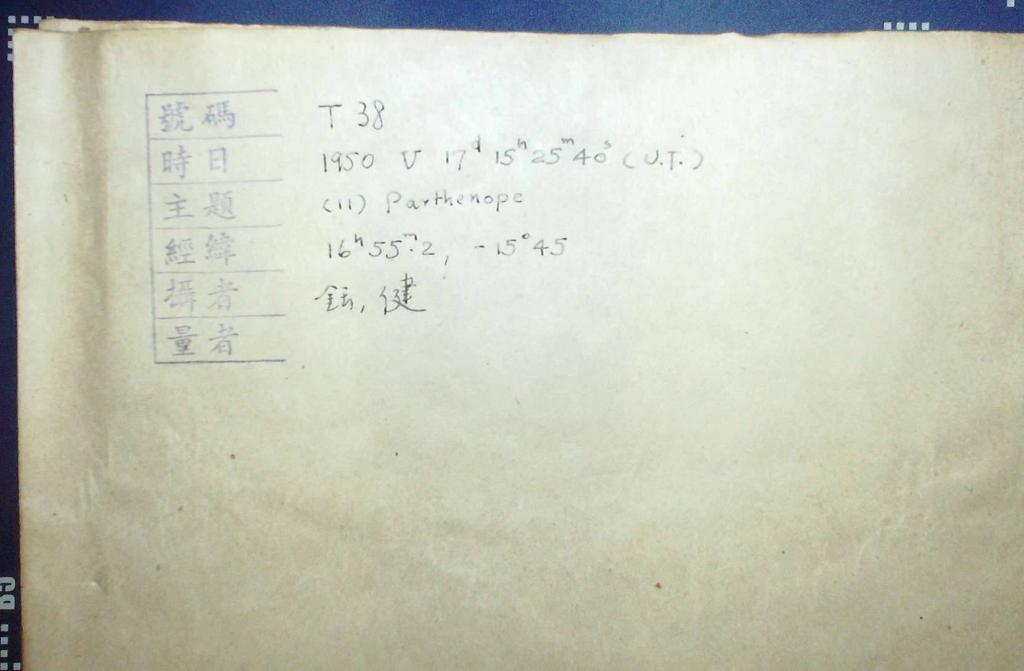 號碼 T 38
時日 1950 V 17ᵈ 15ʰ 25ᵐ 40ˢ (U.T.)
主題 (11) Parthenope
經緯 16ʰ 55ᵐ.2, -15°45
攝者 鈺, 健
量者